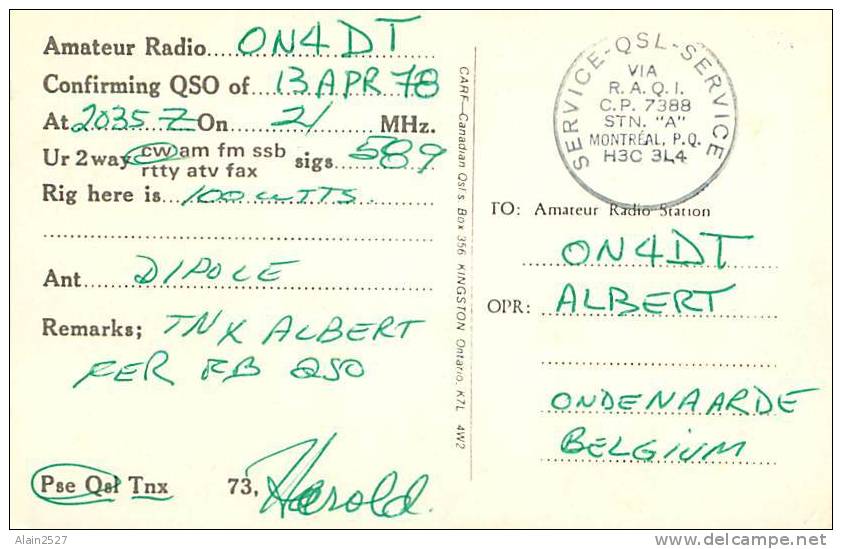 Amateur Radio....ON4DT
Confirming QSO of...13 APR 78
At 2035 Z On 21 MHz.
Ur 2 way cw am fm ssb sigs 589
rtty atv fax
Rig here is...100 WTTS.
Ant DIPOLE
Remarks; TNX ALBERT
FER FB QSO
Pse Qsl Tnx 73, Harold.
CARF—Canadian Qsl's. Box 356 KINGSTON Ontario. K7L 4W2
SERVICE-QSL-SERVICE
VIA
R.A.Q.I.
C.P. 7388
STN. "A"
MONTRÉAL, P.Q.
H3C 3L4
TO: Amateur Radio Station
ON4DT
OPR: ALBERT
ONDENAARDE
BELGIUM
Alain2527
www.delcampe.net